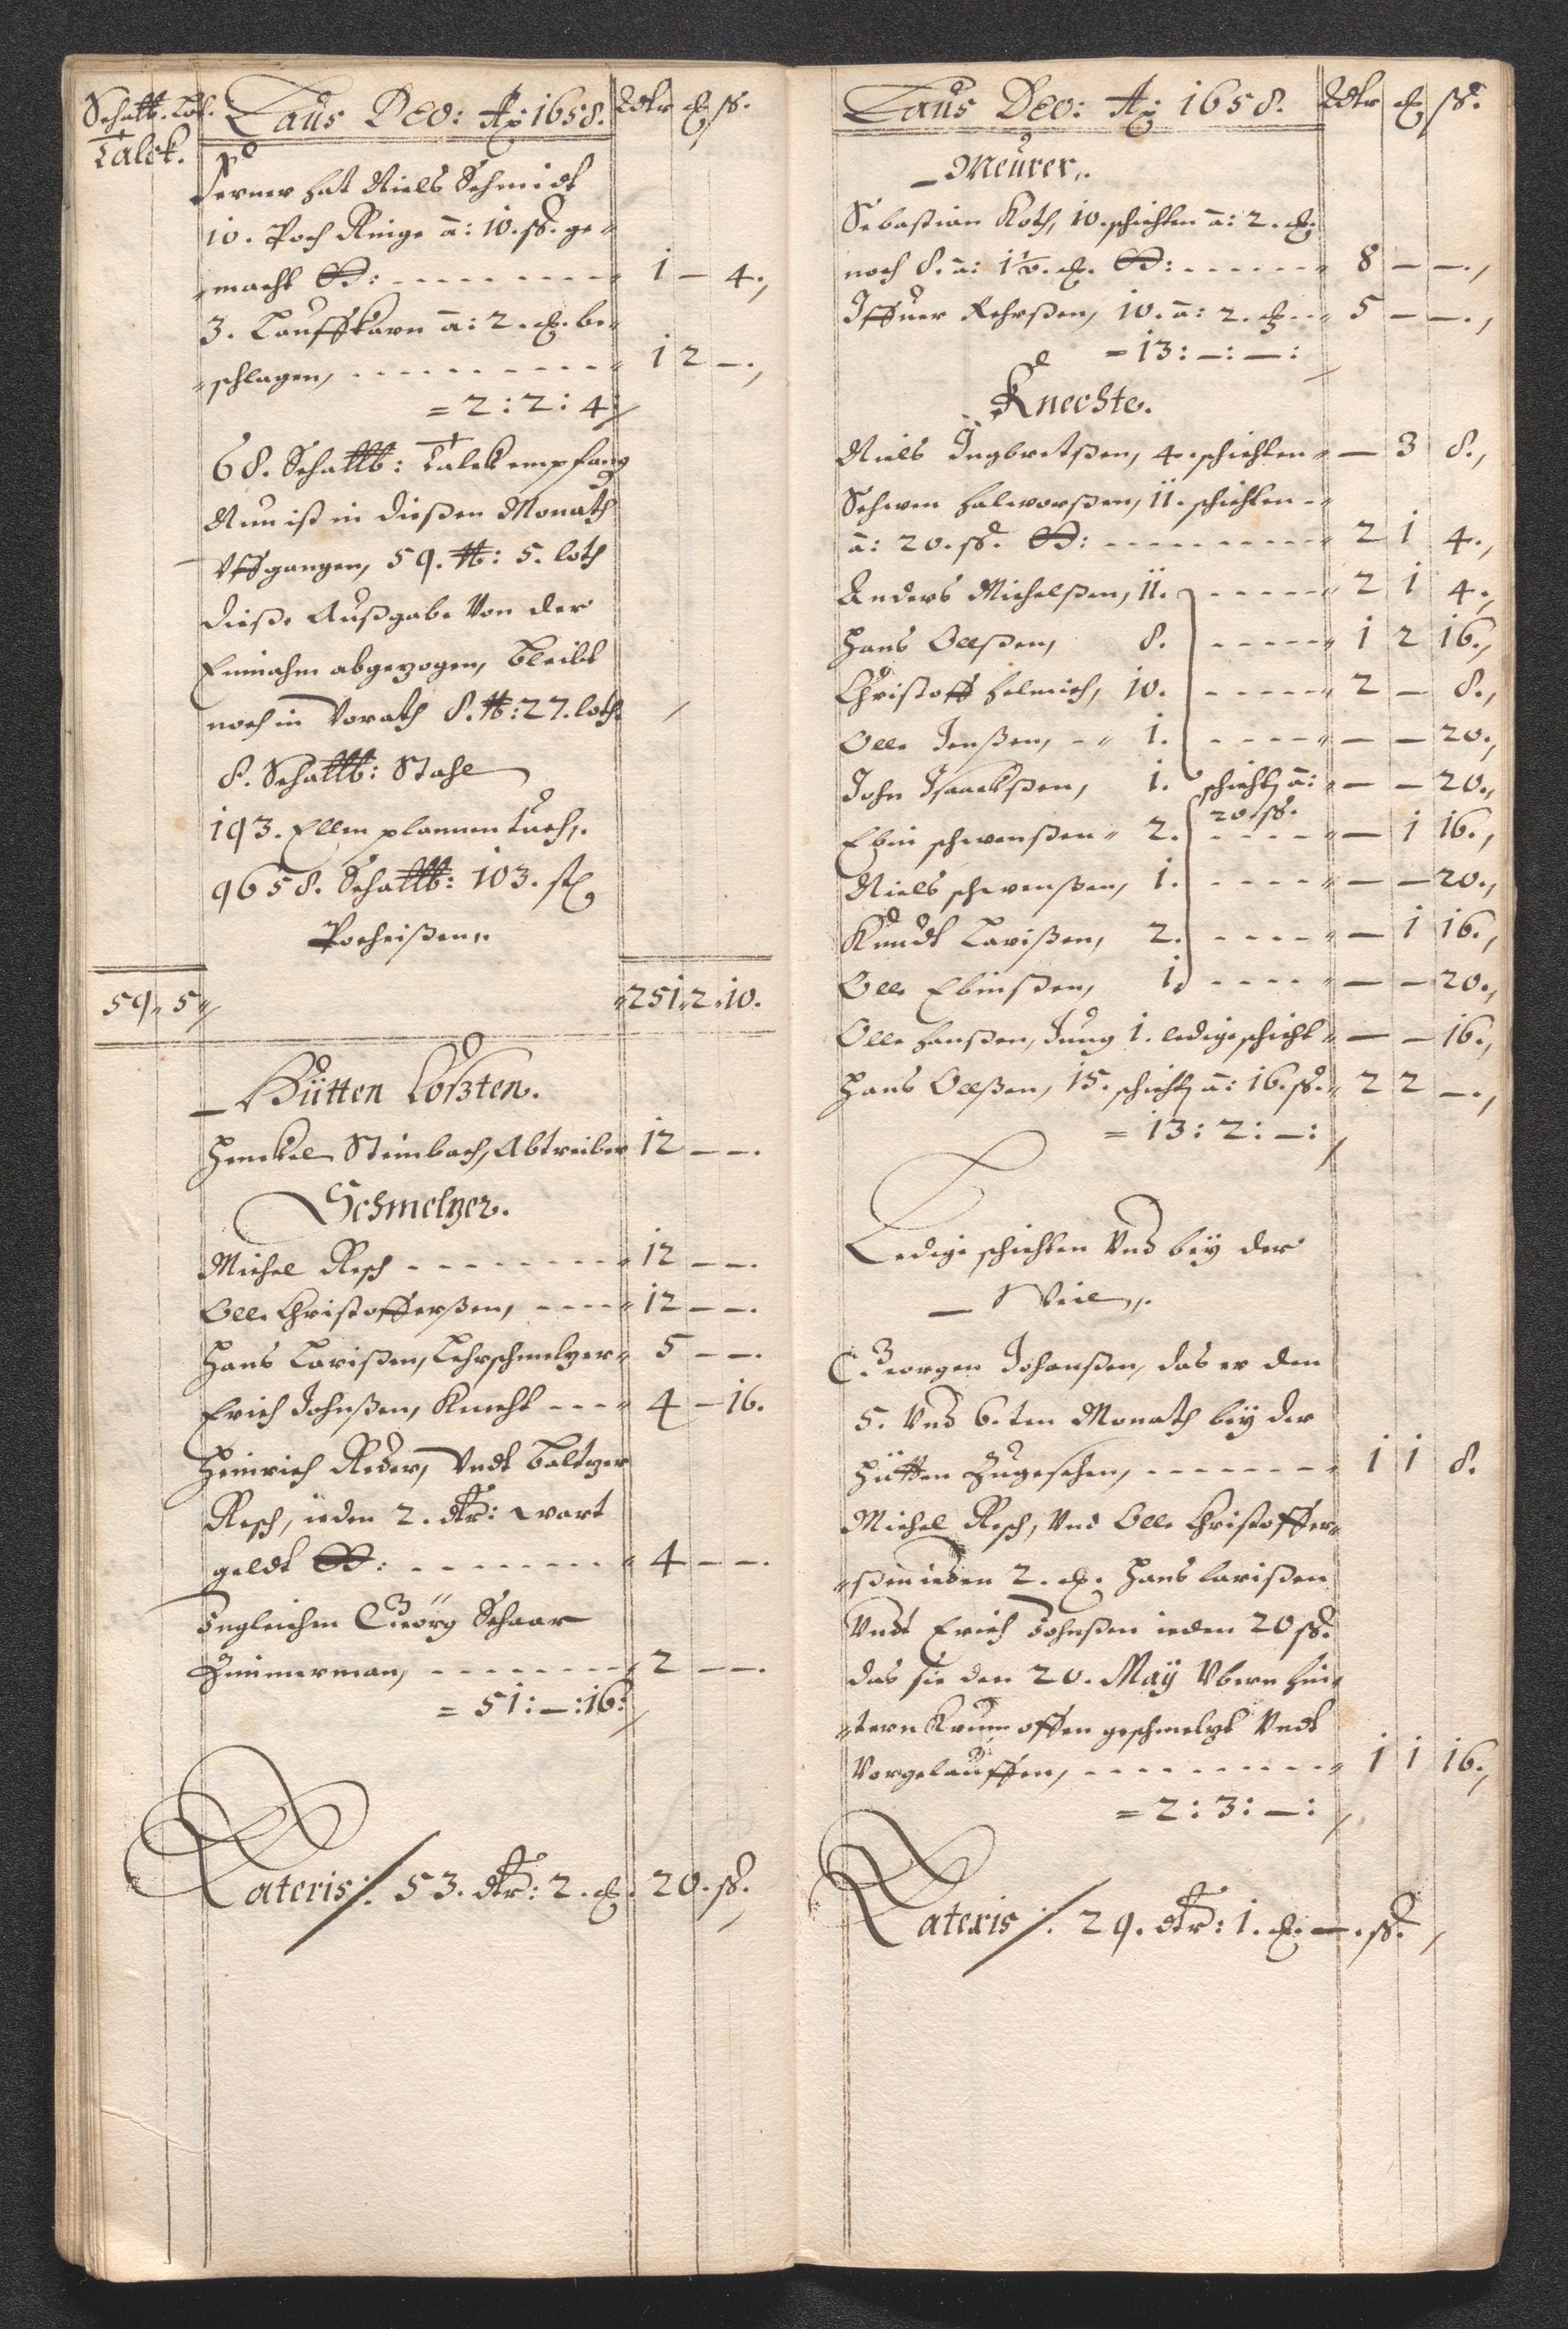 Scha℔. Lot.
Talck.
Laus Deo: Aº: 1658. Rdtr ort ß.
Ferner hat Niels Schmidt
10. Poch Ringe ā: 10. ß. ge-
macht - - - - - - - - 1 — 4.
3. Lauffkarn ā: 2. ort. be-
schlagen, - - - - - - - - - 1 2 —.
= 2: 2: 4:
68. Scha℔: Talck empfang
Nun ist in dießen Monath
Vffgangen, 59. ℔: 5. loth
Dieße Außgabe Von der
Einnahm abgezogen, bleibt
noch in Vorath 8. ℔: 27. loth.
8. Scha℔: Stahl
193. Ellen plannen Tuch,.
9658. Scha℔: 103. st
Pocheißen,.
59, 5, 251, 2, 10.
Hütten Coßten.
Henckel Steinbach, Abtreiber 12 — —.
Schmeltzer.
Michel Resch - - - - - - - 12 — —.
Olle Christofferßen, - - - - 12 — —.
Hans Larißen, Lehrschmeltzer 5 — —.
Erich Johnßen, Knecht - - - 4 — 16.
Heinrich Reder, Vndt Baltzer
Resch, ieden 2. dtr: wart
geldt - - - - - - - 4 — —.
Ingleichen Geörg Schaar
Zimmerman, - - - - - - - 2 — —.
= 51: —: 16:
Lateris /. 53. dtr: 2. ort. 20. ß.
Laus Deo: Aº: 1658. Rdtr ort ß.
Meurer,.
Sebastian Koth, 10. schichten ā: 2. ort.
noch 8. ā: 1½. ort. - - - - - 8 — —.
Iffuer Rehrßen, 10. ā: 2. ort - - 5 — —.
= 13: —: —:
Knechte.
Niels Ingbretßen, 4. schichten - — 3 8.
Schwen halworßen, 11. schichten -
ā: 20. ß. - - - - - - - - 2 1 4.
Anders Michelßen, 11. - - - - - 2 1 4.
Hans Ollßen, 8. - - - - - 1 2 16.
Christoff helmich, 10. - - - - - 2 — 8.
Olle Jenßen, - 1. - - - - — — 20.
John Isaackßen, 1. schicht ā: — — 20.
20. ß.
Ebin schwenßen 2. - - - - — 1 16.
Niels schwenßen, 1. - - - - — — 20.
Knudt Larißen, 2. - - - - — 1 16.
Olle Ebinßen, 1. - - - - — — 20.
Olle hanßen, Jung 1. ledige schicht — — 16.
Hans Ollßen, 15. schicht ā: 16. ß. 2 2 —.
= 13: 2: —:
Ledige schichten Vnd bey der
Weil,.
Georgen Johanßen, das er den
5. Vnd 6.ten Monath bey der
Hütten Zugesehen, - - - - - - - 1 1 8.
Michel Resch, Vnd Olle Christoffer-
ßen ieden 2. ort. Hans larißen
Vndt Erich Johnßen ieden 20 ß.
das sie den 20. Maij Vbern hin-
tern Krumoffen geschmeltzt Vndt
Vorgelauffen, - - - - - - - - - 1 1 16.
= 2: 3: —:
Lateris /. 29. dtr: 1. ort. —. ß.